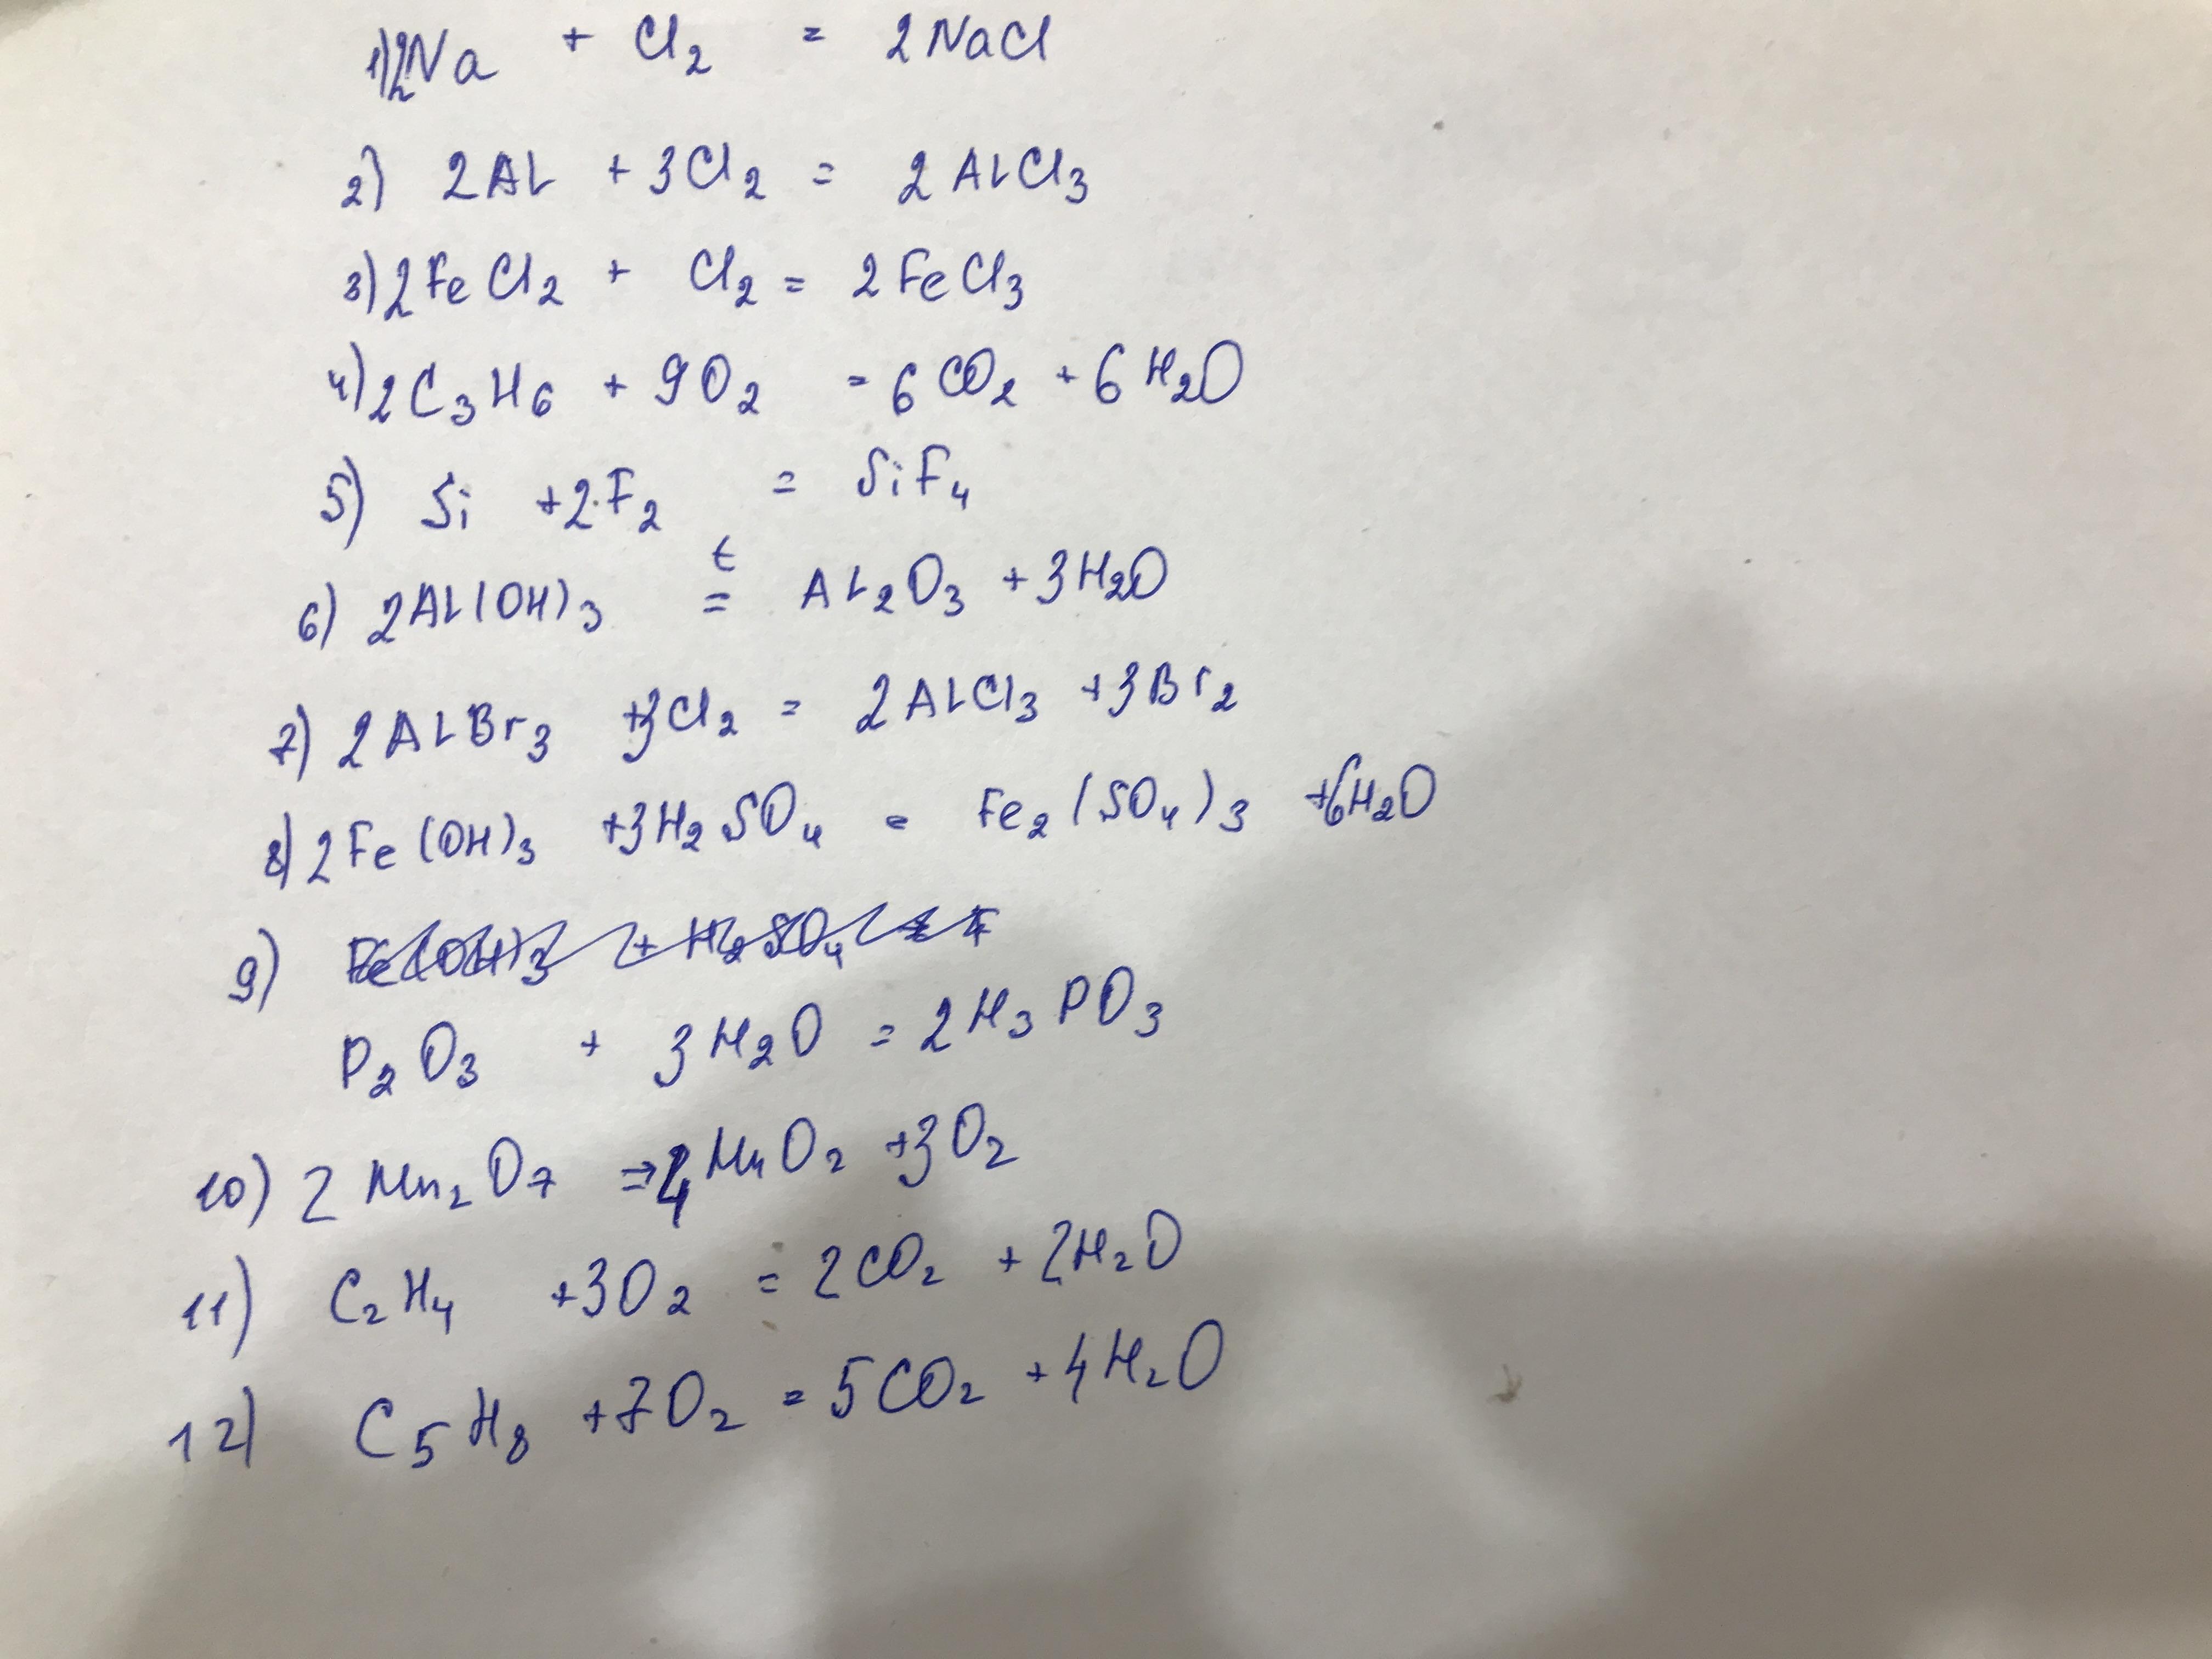 1) 2Na + Cl₂ = 2NaCl
2) 2Al + 3Cl₂ = 2AlCl₃
3) 2FeCl₂ + Cl₂ = 2FeCl₃
4) 2C₃H₆ + 9O₂ = 6CO₂ + 6H₂O
5) Si + 2F₂ = SiF₄
t
6) 2Al(OH)₃ = Al₂O₃ + 3H₂O
7) 2AlBr₃ + 3Cl₂ = 2AlCl₃ + 3Br₂
8) 2Fe(OH)₃ + 3H₂SO₄ = Fe₂(SO₄)₃ + 6H₂O
9) Fe(OH)₃ + H₂SO₄ = F
P₂O₃ + 3H₂O = 2H₃PO₃
10) 2Mn₂O₇ ⇒ 4MnO₂ + 3O₂
11) C₂H₄ + 3O₂ = 2CO₂ + 2H₂O
12) C₅H₈ + 7O₂ = 5CO₂ + 4H₂O